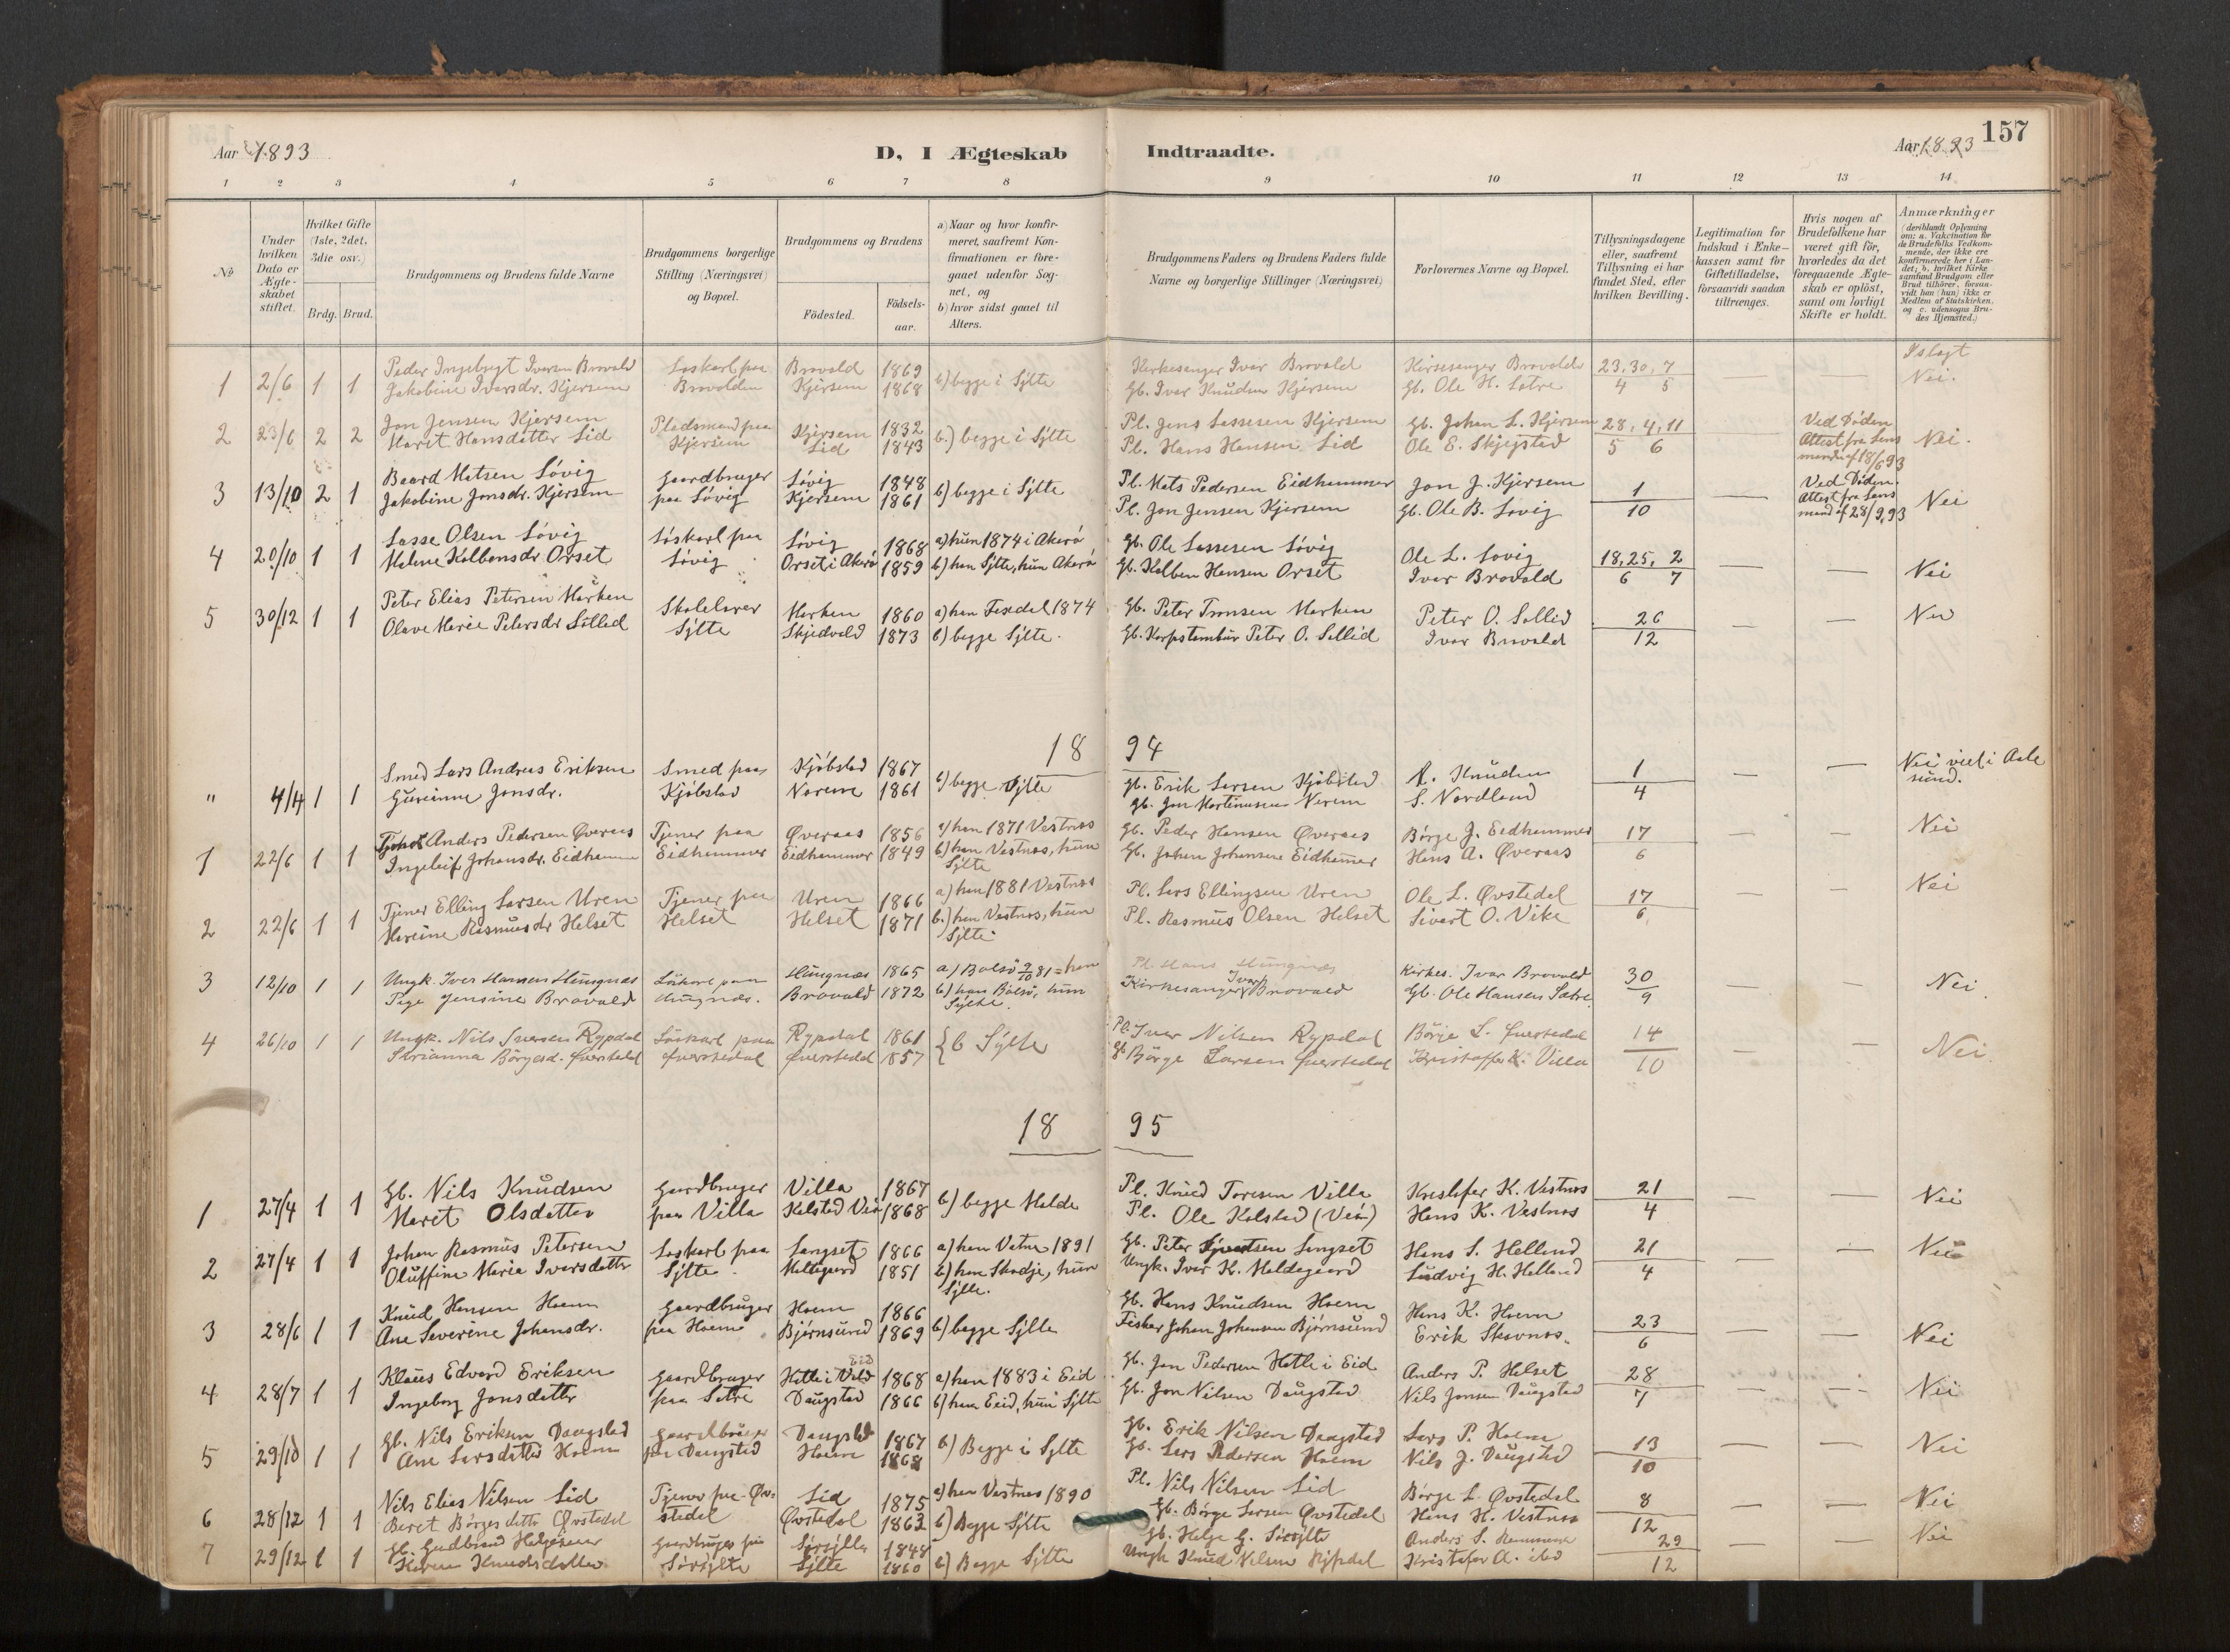 157
Aar 1893
D, I Ægteskab
Indtraadte.
Aar 1893
1 2 3 4 5 6 7 8 9 10 11 12 13 14
No
Under hvilken Dato er Ægte-skabet stiftet.
Hvilket Gifte (1ste, 2det, 3die osv.)
Brdg. Brud.
Brudgommens og Brudens fulde Navne
Brudgommens borgerlige Stilling (Næringsvei) og Bopæl.
Brudgommens og Brudens
Födested.
Födsels-aar.
a) Naar og hvor konfir-meret, saafremt Kon-firmationen er fore-gaaet udenfor Sog-net, og
b) hvor sidst gaaet til Alters.
Brudgommens Faders og Brudens Faders fulde Navne og borgerlige Stillinger (Næringsvei)
Forlovernes Navne og Bopæl.
Tillysningsdagene eller, saafremt Tillysning ei har fundet Sted, efter hvilken Bevilling.
Legitimation for Indskud i Enke-kassen samt for Giftetilladelse, forsaavidt saadan tiltrænges.
Hvis nogen af Brudefolkene har været gift för, hvorledes da det foregaaende Ægte-skab er oplöst, samt om lovligt Skifte er holdt.
Anmærkninger (deriblandt Oplysning om: a. Vakcination for de Brudefolks Vedkom-mende, der ikke ere konfirmerede her i Lan-det; b. hvilket Kirke-samfund Brudgom eller Brud tilhörer, forsaa-vidt han (hun) ikke er Medlem af Statskirken. og c. udensogns Bru-des Hjemsted.)
1 2/6 1 1 Peder Ingebrigt Iversen Brovold Löskarl paa Brovold 1869 b) begge i Sylte Kirkesanger Ivar Brovold Kirkesanger Brovold 23, 30, 7 — — Islagt
Jakobine Ivarsdr. Kjersem Brovolden Kjersem 1868 Gb. Ivar Knudsen Kjersem Gb. Ole H. Sætre 4 5 Nei.
2 23/6 2 2 Jon Jensen Kjersem Pladsmand paa Kjersem 1832 b.) begge i Sylte Pl. Jens Lassesen Kjersem Gb. Johan L. Kjersem 28, 4, 11 Ved Döden
Marit Hansdatter Lid Kjersem Lid 1843 Pl. Hans Hansen Lid Ole E. Skjegstad 5 6 Attest fra Lens mand af 18/6 93 Nei.
3 13/10 2 1 Baard Matsen Sövig Gaardbruger Sövig 1848 b) begge i Sylte Pl. Mats Pedersen Eidhammer Jon J. Kjersem 1 — Ved Döden.
Jakobine Jonsdr. Kjersem paa Sövig Kjersem 1861 Pl. Jon Jensen Kjersem Gb. Ole B. Sövig 10 Attest fra Lens mand af 28/9, 93 Nei
4 20/10 1 1 Lasse Olsen Sövig Löskarl paa Sövig 1868 a) hun 1874 i Akerö Gb. Ole Lassesen Sövig Ole L. Sövig 18, 25, 2 — — Nei
Malene Kolbensdr Orset Sövig Orset i Akerö 1859 b) han Sylte, hun Akerö Gb. Kolben Hansen Orset Ivar Brovold 6 7
5 30/12 1 1 Peter Elias Petersen Harken Skolelærer Harken 1860 a) han 1874 Gb. Peter Harken Peter O. Sollid 26 — —
Olave Marie Petersdr Sollid Sylte Skjedvold 1873 b) begge Sylte. Gb. Korpstambur Peter O. Sollid Ivar Brovold 12
18 94
" 4/4 1 1 Smed Lars Andreas Eriksen Smed paa Kjöbstad 1867 b) begge Sylte Gb. Erik Larsen Kjöbstad K. Knudsen 1 — — Nei viet i Aale
Gurianne Jonsdr. Kjöbstad Nerem 1861 Gb. Jon Martinussen Nerem S. Nordland 4 sund.
1 22/6 1 1 Anders Pedersen Överaas Tjener paa Överaas 1856 a) han 1871 Vestnæs Gb. Peder Hansen Överaas Börge J. Eidhammer 17 — — Nei
Ingeleif Johansdr. Eidhammer Eidhammer Eidhammer 1849 b) han Vestnæs, hun Sylte Gb. Johan Johansen Eidhammer Hans A. Överaas 6
2 22/6 1 1 Tjener Elling Larsen Uren Tjener paa Uren 1866 a) han 1881 Vestnæs Pl. Lars Ellingsen Uren Ole L. Övstedal 17 — — Nei
Rasmusdr Helset Helset Helset 1871 b.) han Vestnæs, hun Sylte. Pl. Rasmus Olsen Helset Sivert O. Vike 6
3 12/10 1 1 Ungk. Iver Hansen Hungnæs Löskarl paa Hungnæs 1865 a) Bolsö 9/10 81 = han Pl. Hans Hungnæs Kirkes. Ivar Brovold 30 Nei.
Pige Jensine Brovold Hungnæs. Brovold 1872 b) han Bolsö, hun Sylte. Kirkesanger Ivar Brovold Gb. Ole Hansen Sætre 9
4 26/10 1 1 Ungk. Nils Iversen Rypdal Löskarl paa Rypdal 1861 { b Sylte Pl. Iver Nilsen Rypdal Börje L. Överstedal 14 — — Nei.
Börgesd. Överstedal Överstedal Överstedal 1857 Gb Börge Larsen Överstedal Kristoffer K. Villa 10
18 95
1 27/4 1 1 Gb. Nils Knudsen Gaardbruger Villa 1867 b) begge Molde Pl. Knud Toresen Villa Kristofer K. Vestnæs 21 — — Nei
Marit Olsdatter paa Villa Kolstad Veö 1868 Pl. Ole Kolstad (Veö) Hans K. Vestnæs 4
2 27/4 1 1 Johan Rasmus Petersen Löskarl paa Langset 1866 a) han Vatne 1891 Gb. Peter Langset Hans S. Helland 21 — — Nei
Oluffine Marie Ivarsdatter Sylte. 1851 b) han Skodje, hun Sylte. Ungk. Ivar K. Moldegaard Ludvig H. Helland 4
3 28/6 1 1 Knud Hansen Hoem Gaardbruger Hoem 1866 b) begge Sylte Gb. Hans Knudsen Hoem Hans K. Hoem 23 — — Nei
Ane Severine Johansdr. paa Hoem Björnsund 1869 Fisker Johan Johansen Björnsund Erik 6
4 28/7 1 1 Klaus Edvard Eriksen Gaardbruger Hatle i Eid 1868 a) han 1883 i Eid Gb. Jon Pedersen Hatle i Eid Anders P. Helset 28 — — Nei
Ingeborg Jonsdatter paa Sætre Daugstad 1866 b) han Eid, hun Sylte Gb. Jon Nilsen Daugstad Nils Jonsen Daugstad 7
5 29/10 1 1 Gb. Nils Eriksen Daugstad Gaardbruger Daugstad 1867 b) Begge i Sylte Gb. Erik Nilsen Daugstad Lars P. Hoem 13 — — Nei
Ane Larsdatter Hoem paa Daugstad Hoem 1868 Gb. Lars Pedersen Hoem Nils J. Daugstad 10
6 28/12 1 1 Nils Elias Nilsen Lid Tjener paa Öv- Lid 1875 a) han Vestnæs 1890 Pl. Nils Nilsen Lid Börge L. Övstedal 8 — — Nei
Beret Börgesdatter Övstedal stedal Övstedal 1863 b) Begge Sylte Gb. Börge Larsen Övstedal Hans H. Vestnæs 12
7 29/12 1 1 Gb. Gudbrand Helgesen Gaardbruger paa Sörsylte 1848 b) Begge Sylte Gb. Helge G. Sörsylte Anders S. 29 — — Nei
Karen Knudsdatter Sörsylte Sylte 1860 Ungk Knud Nilsen Rypdal Kristofer A. 12